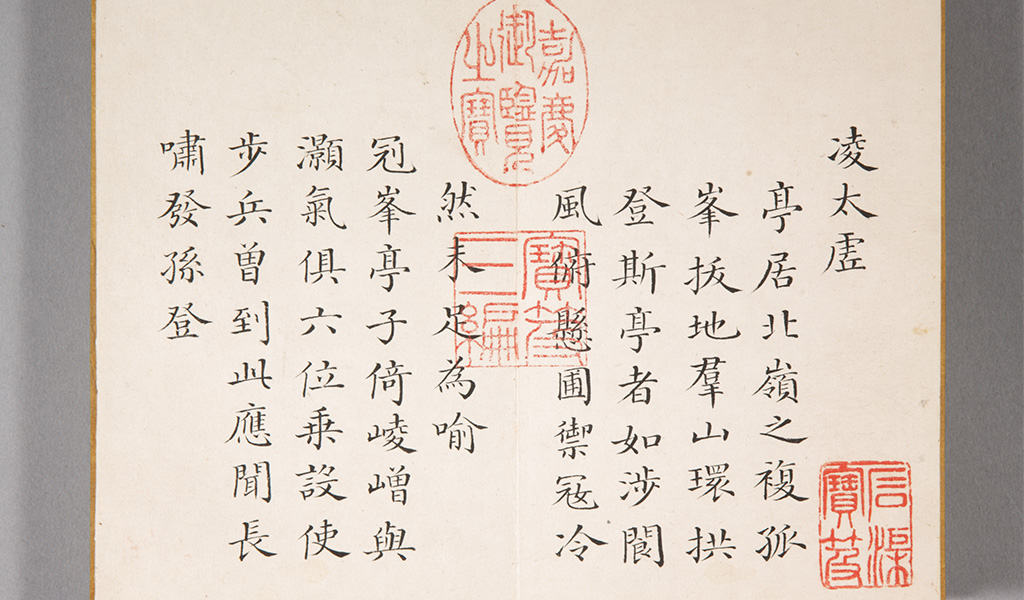 凌太虛
亭居北嶺之複孤
峯拔地羣山環拱
登斯亭者如涉閬
風俯懸圃禦寇冷
然未足為喻
冠峯亭子倚崚嶒與
灝氣俱六位乗設使
步兵曾到此應聞長
嘯發孫登
嘉慶御覽之寶
寶笈三編
石渠寶笈